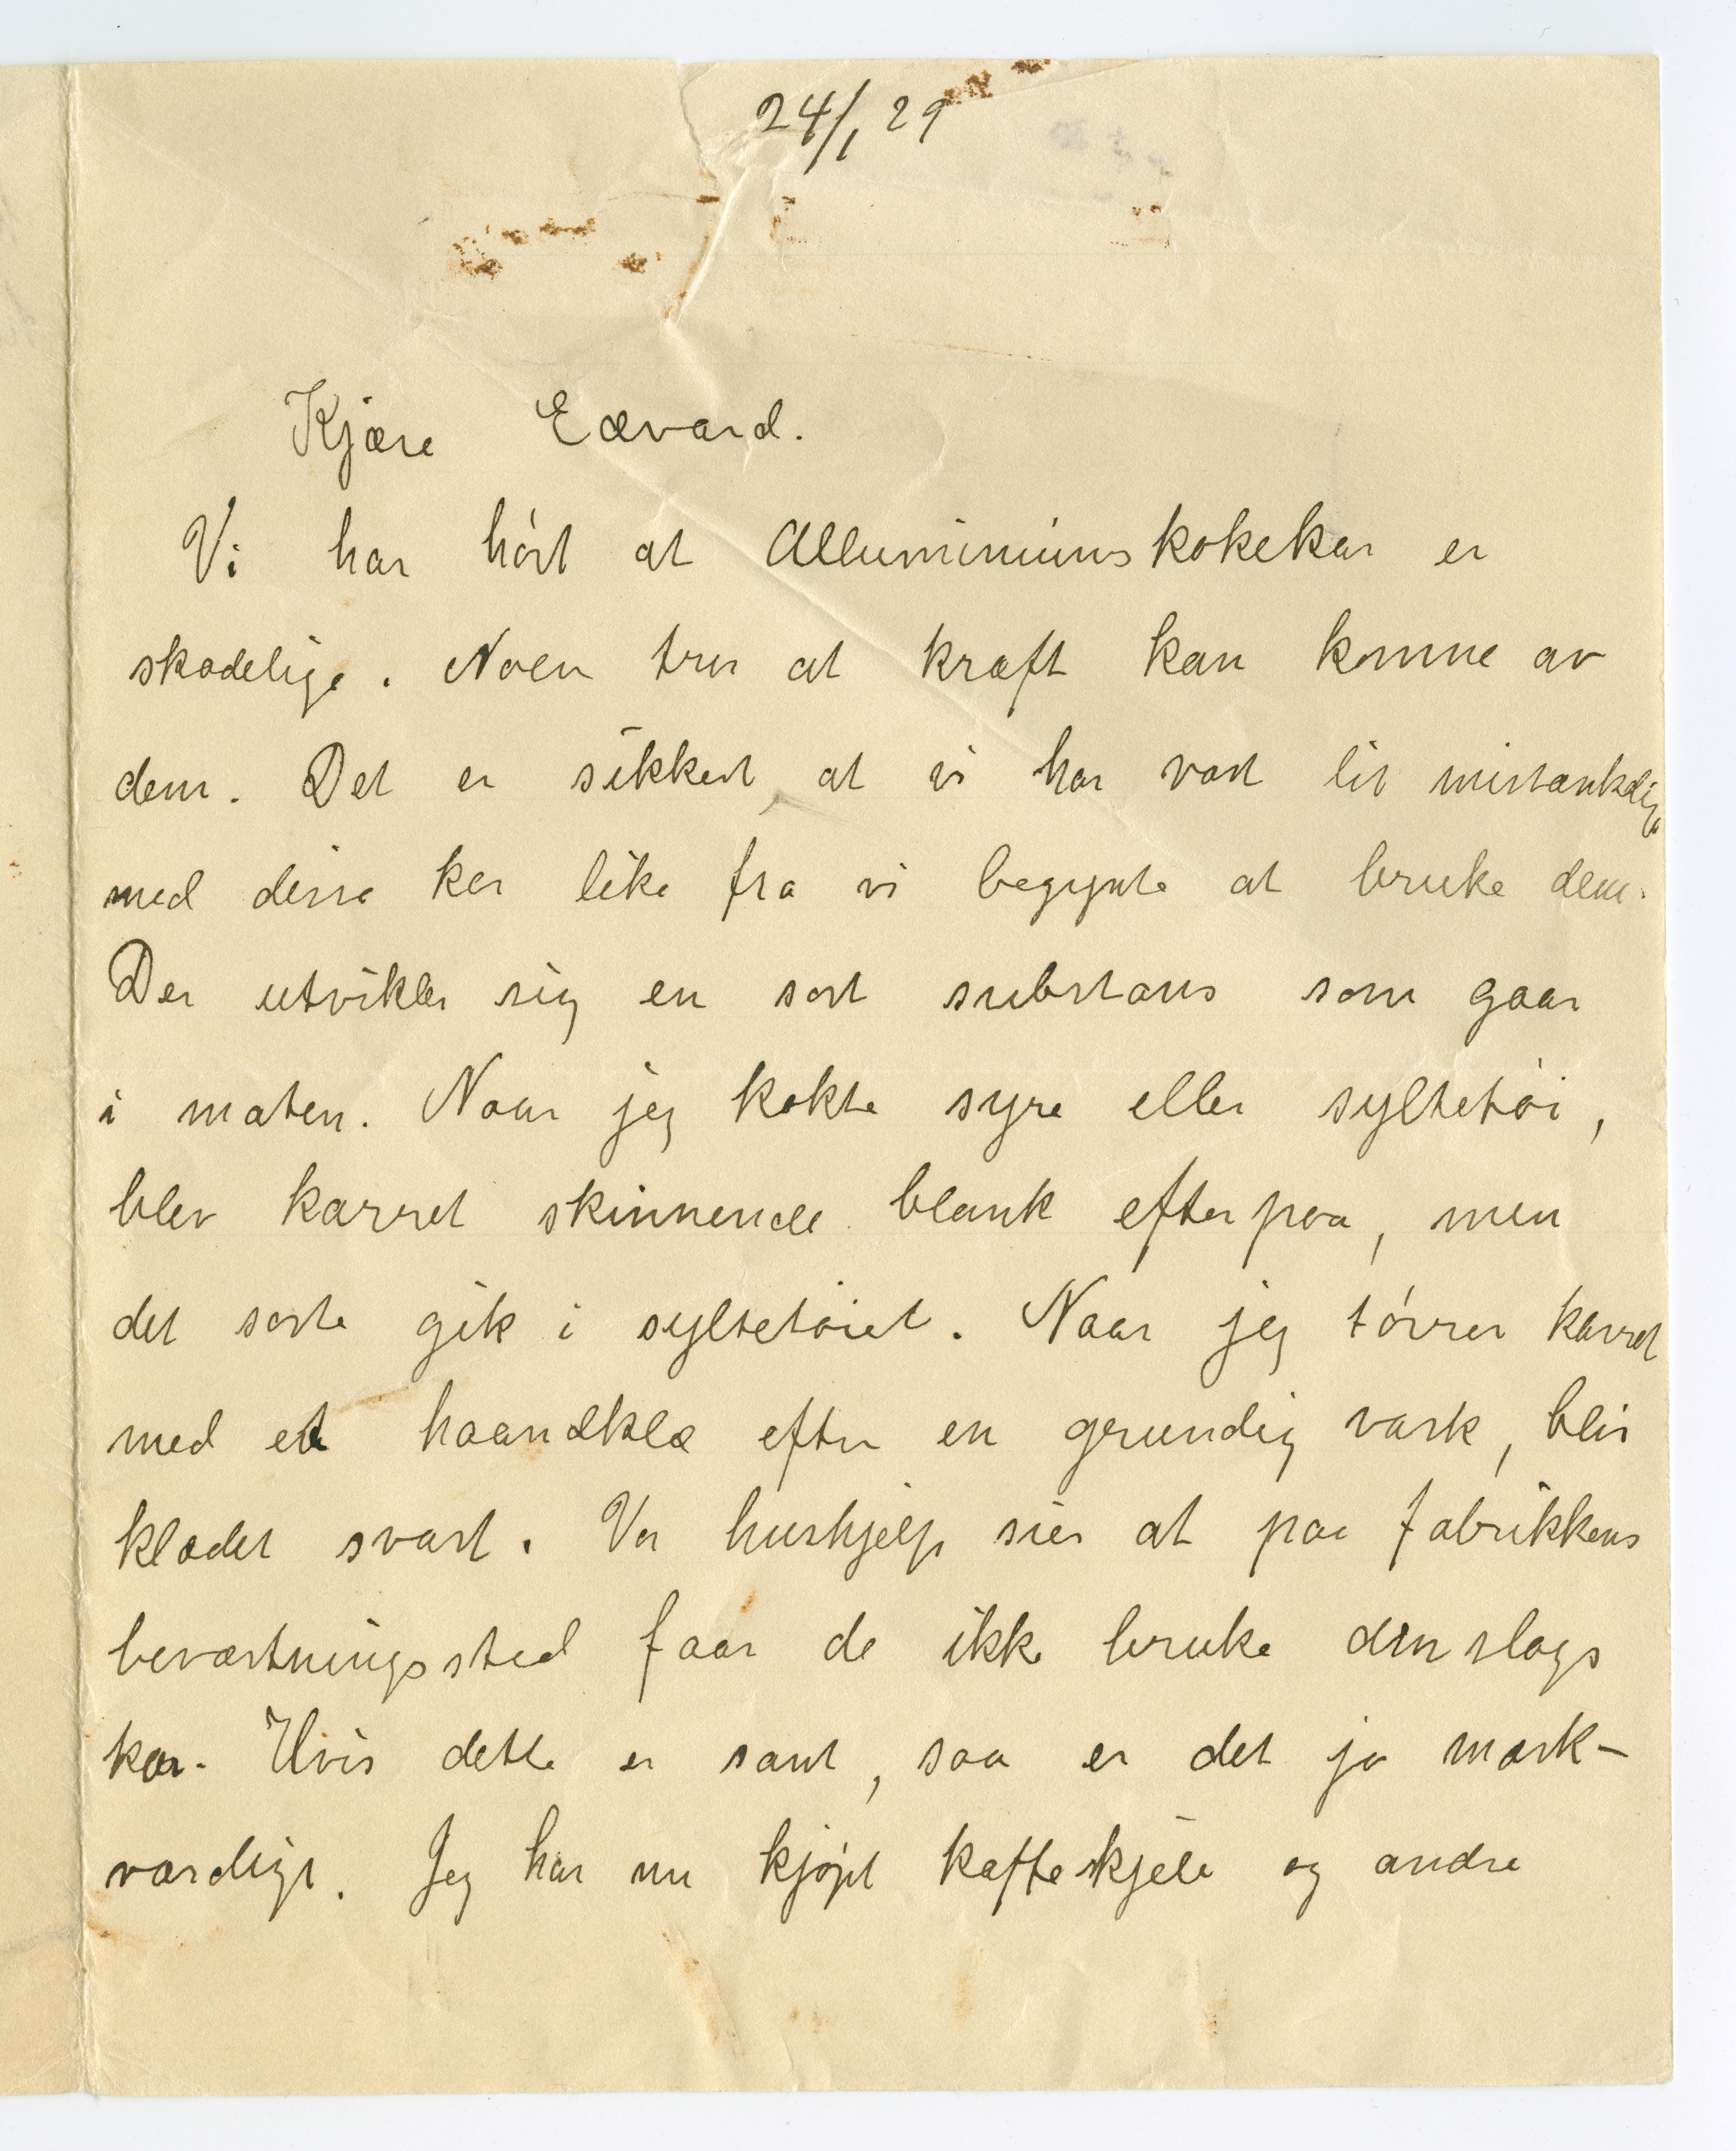 24/1 29
Kjære Edvard.
Vi har hørt at Alluminiumskokekar er
skadelige. Noen tror at kræft kan komme av
dem. Det er sikkert, at vi har vært lit mistænkelige
med disse kar like fra vi begynte at bruke dem.
Der utvikler sig en sort substans som gaar
i maten. Naar jeg kokte syre eller syltetøi,
blev karret skinnende blank efterpaa, men
det sorte gik i syltetøiet. Naar jeg tørrer karret
med et haandklæ efter en grundig vask, blir
klædet svart. Vor hushjelp sier at paa fabrikkens
beværtningssted faar de ikke bruke den slags
kar. Hvis dette er sant, saa er det jo merk-
værdigt. Jeg har nu kjøpt kaffeskjele og andre